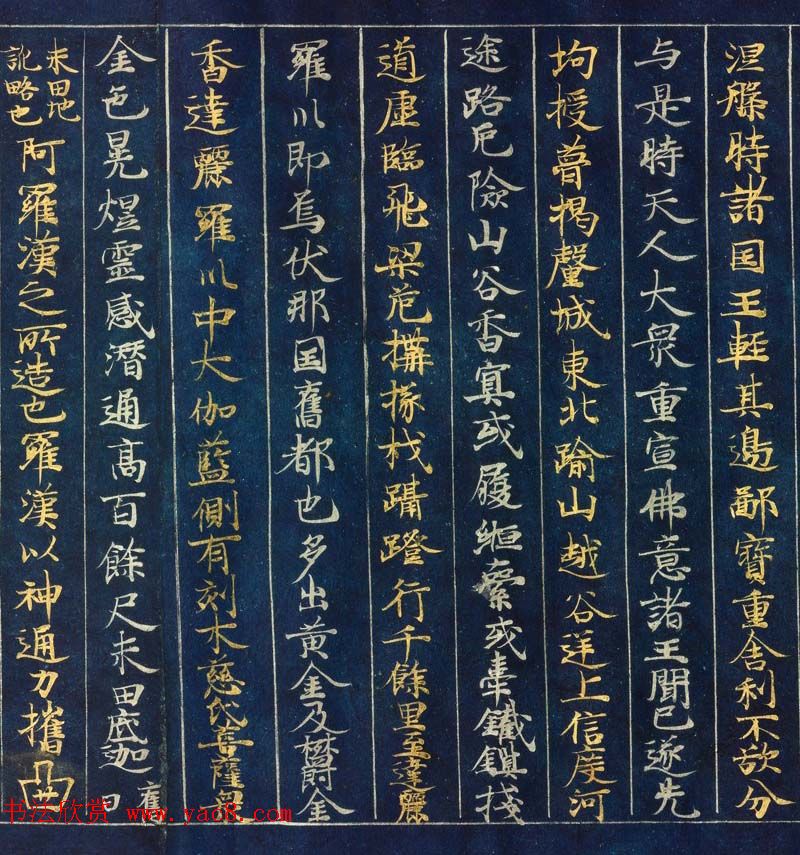 涅槃時諸国王輕其邊鄙寶重舍利不欲分
与是時天人大衆重宣佛意諸王聞已遂先
拘授瞢揭釐城東北踰山越谷逆上信度河
途路危險山谷杳冥或履絙索或牽鐵鎖棧
道虛臨飛梁危構椽杙躡蹬行千餘里至達麗
羅川即烏仗那国舊都也多出黃金及欝金
香達麗羅川中大伽藍側有刻木慈氏菩薩
金色晃煜靈感潛通高百餘尺末田底迦舊曰
末田地
訛略也阿羅漢之所造也羅漢以神通力攜
书法欣赏 www.yac8.com